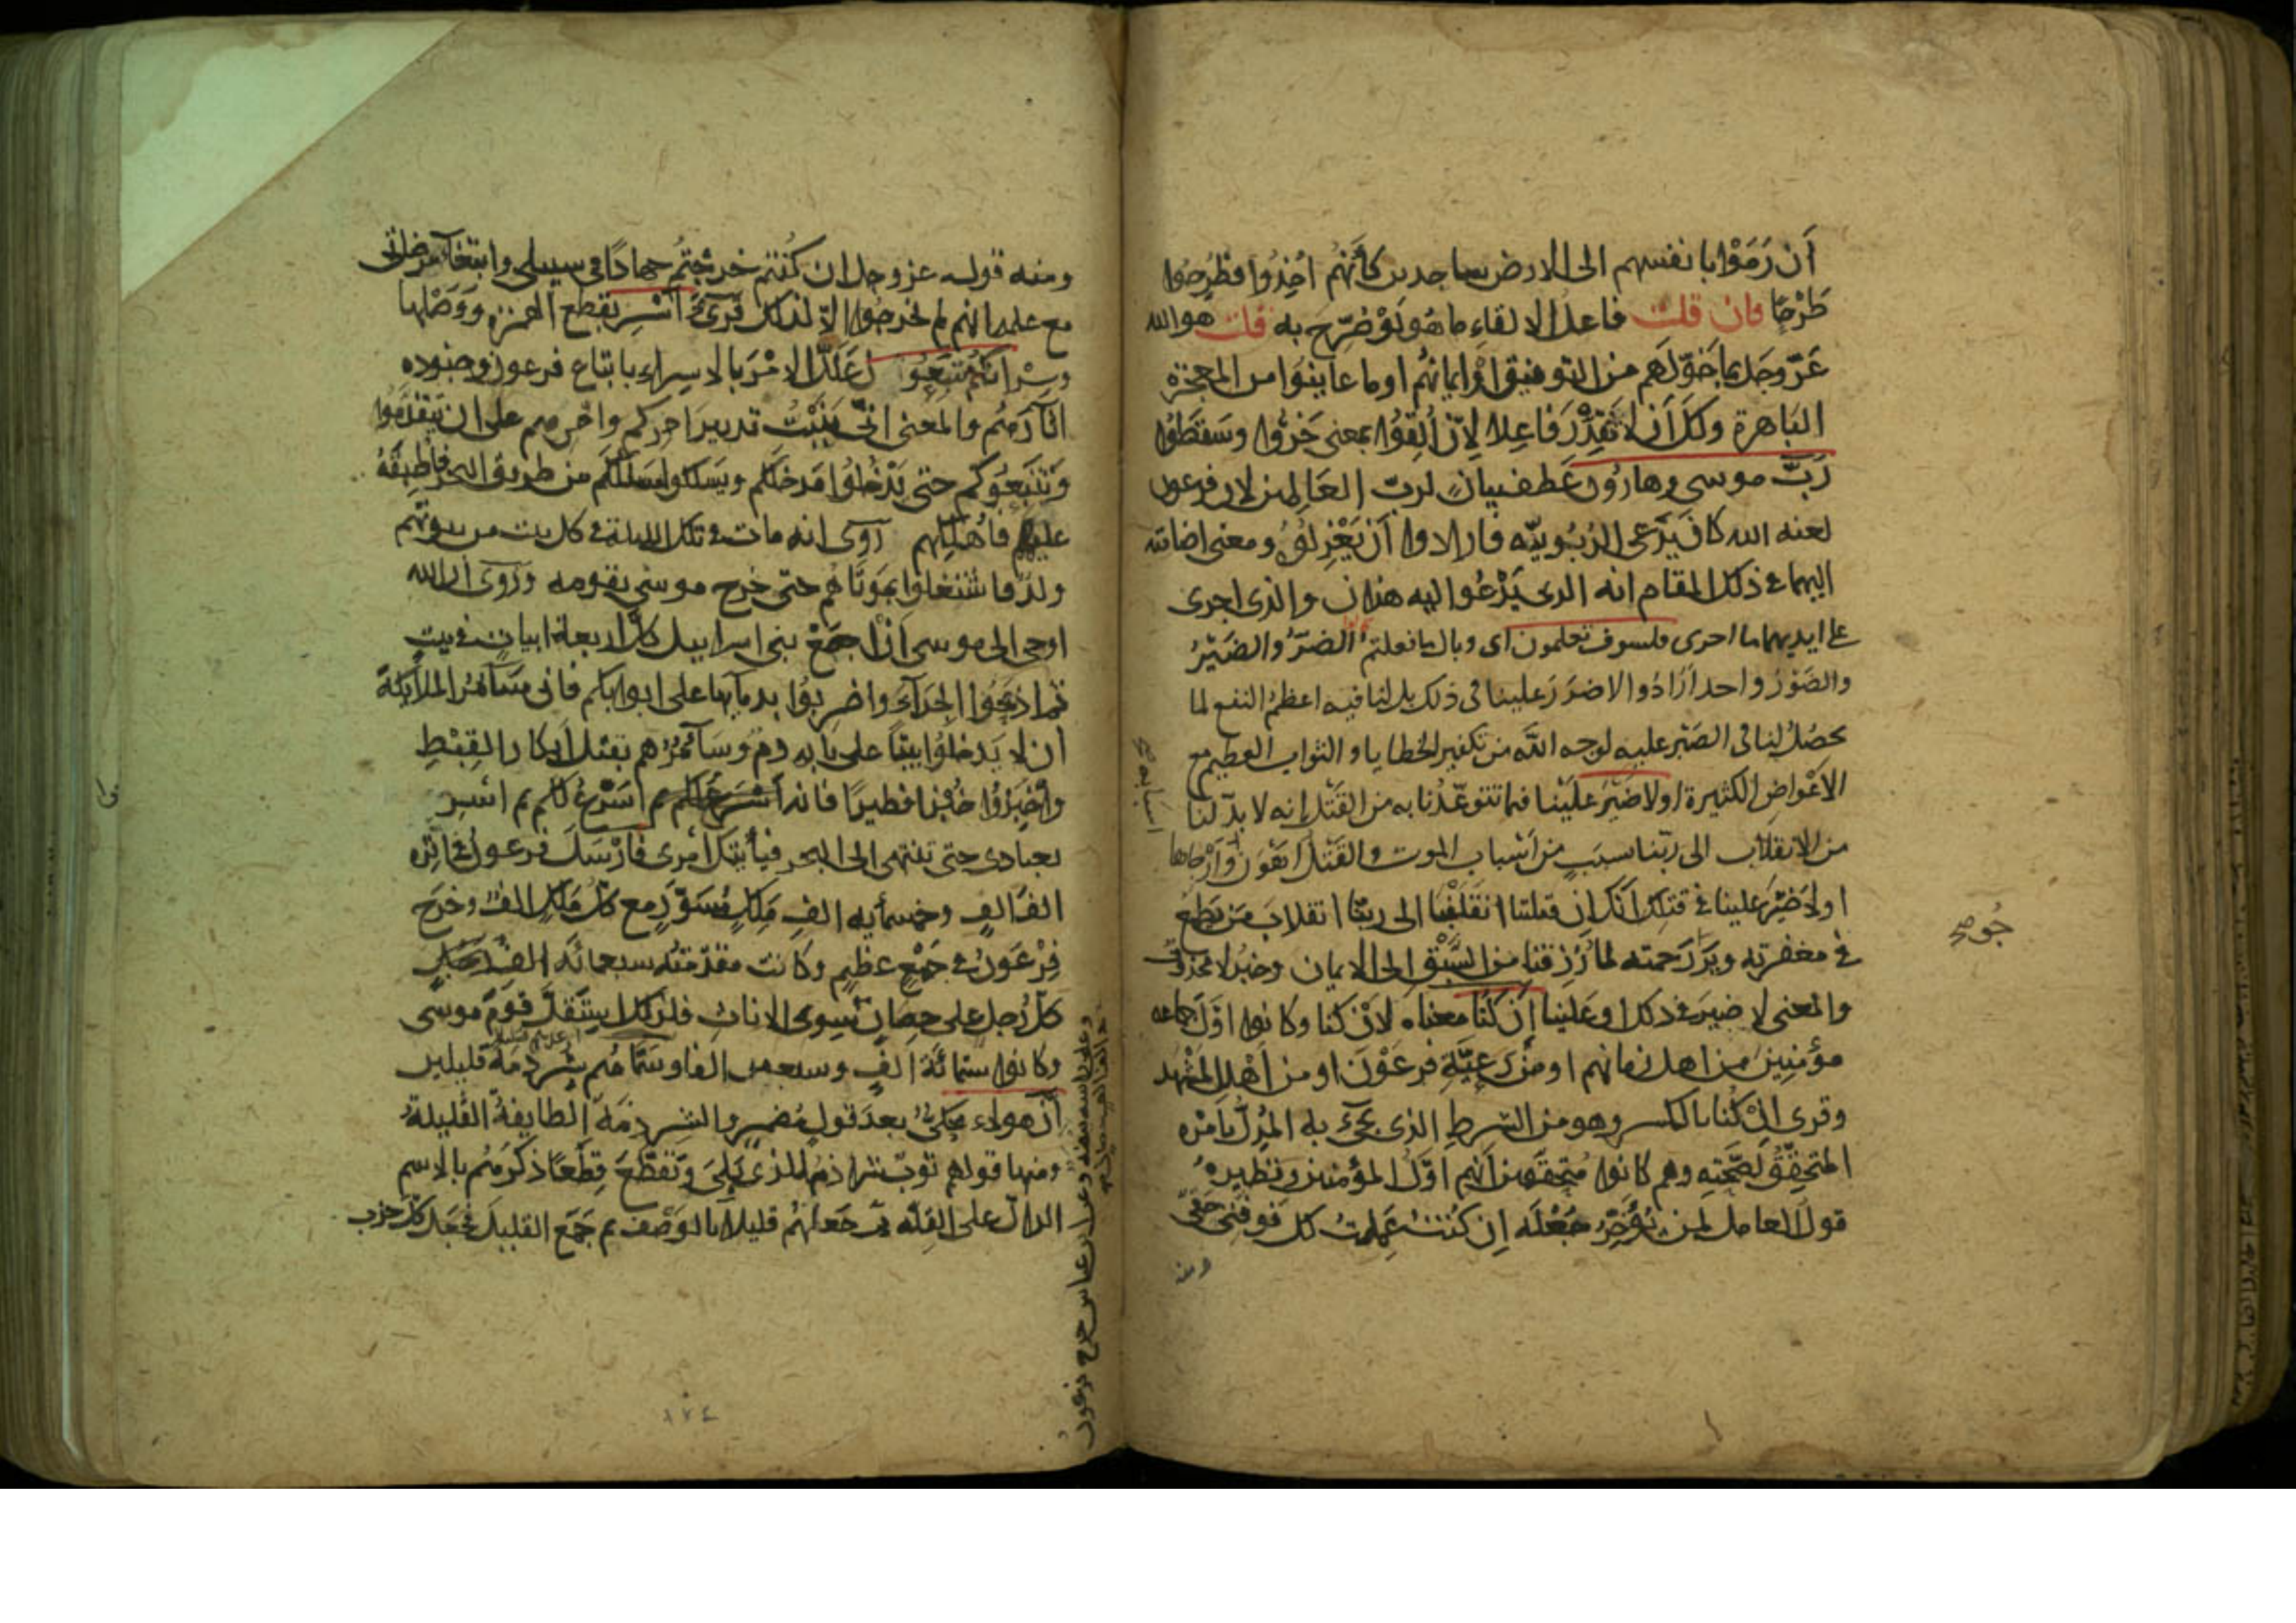 أن رَمَوْا بانفسهم الى الارض ساجدين كأنهم اُخِذُوا فطُرِحُوا
طَرْحًا فان قلت فاعل الالقاءِ ما هُو لَوْ صُرّح به قلت هو الله
عَزّ وجل بما خَوّلهم من التوفيق اوْ ايمانهُم او ما عاينوا من المعجزة
البَاهرة ولكَ أن لا تُقَدِّر فاعِلا لِأنّ اُلقِوُا بمعنى خَرُّوا وسَقَطُوا
رَبّ موسى وهارُون عَطف بيانٍ لرب العَالمين لان فرعون
لعنه الله كان يَدّعى الرُبُوبيّه فارادوا أن يَعْزِلوُه ومعنى اضافته
اليهما فى ذلك المقام انه الذى يَدْعُوا اليه هذان والذى اجرى
على ايديهما ما اجرى فلسوف تعلمون اى وبال ما فعلتم الضرّ والضَيْرُ
والضَوْرُ واحد اَرَادُوا لا ضرَرَ علينا فى ذلك بل لنا فيه اعظمُ النفع لما
يحصُلُ لنا فى الصَبْر عليه لوجه الله من تكفير الخطايا والثواب العظيم مع
الاعْواضِ الكثيرة او لا ضَيْرَ علَيْنا فيما تتوعّدُنا به من القَتْل إنه لا بدّ لنا
من الانقلاب الى ربّنا بسبَبٍ من اَسْباب الموت والقَتْل اَهْوَن وأرْجاها
او لا ضَيْرَ علينا فى قتلك اَنّكَ اِن قتلتنا انقَلَبْنا الى ربنا انقلابَ مَن يَطمع
فى مغفرته ويَرْ رَحمته لما رُزِقنا من السَّبْقِ الى الايمان وخبرُ لا محذوف
والمعنى لا ضيرَ فى ذلك او عَلينا اَن كنّا معناه لأن كنا وكانوا اوّل جماعه
مؤمنِينَ من اهل زمانهم او من رَعيّةِ فرعَوْن او من اَهْلِ المَشْهَد
وقرى اِنْ كُنا بالكسر وهو من الشرطِ الذى يجىءُ به المُدِلُّ بأمْره
المتحقِّقُ لِصّحَّتِه وهم كانوا مُتحققين أنهم اوّلُ المؤمنين ونظيرهُ
قولُ العامل لمن يُؤَخِّرُ جُعْلَه اِن كُنتُ عَمِلتُ لك فوفّنى حَقّى
ومنه
جُوصح
ومنه قوله عز وجل ان كُنتم خرجْتُم جهادًا فى سبيلى وابتغآء مرضاتى
مع علمه انهم لم يخرجُوا الا لذلك قرِىءَ اَسْرِ بقطع الهمزةِ ووَصْلها
وسِرْ اِنكم مُتّبَعُون علَّلَ الامْر بالاسراءِ باتباع فرعون وجنوده
اثآرَهُم والمعنى انى بَنَيْتُ تدبيرَ امركم وامرهم على ان يتقدّمُوا
ويَتْبَعُوكم حتى يَدْخُلوُا مَدخلكم ويَسلكوا مسلككم من طريق البحر فأُطبِقَهُ
عليهم فأُهْلِكهم رُوِى انه مات فى تلك الليلة فى كل بيت من بيوتهم
ولدٌ فاشتغلوا بموتاهُم حتى خرج موسى بقومه ورُوِى أن الله
اوحى الى موسى اَن اجمَعْ بنى اسراييل كلَّ اربعة ابياتٍ فى بيتٍ
ثم اذبَحُوا الجِدَآءَ واضربُوا بدمآيها على ابوابكم فانى سَآمُرُ الملآئكةَ
أن لا يَدخلوُا بيتًا على بابه دم وسَآمُرُهم بقتل اَبكار القِبْطِ
واخْبِزُوا خُبْزا فطيرًا فانه اَسْرعُ لكم ثم اَسْرِ
بعبادى حتى تنتهى الى البحر فيأتِيَك اَمْرى فارْسَلَ فرعونُ فى اثره
الفَ الفٍ وخمسمأيه الفِ مَلِكٍ مُسَوَّرٍ مع كل مَلِكٍ الفٌ وخرَج
فِرْعَونُ فى جَمْعٍ عظيمٍ وكانت مقدّمتُه سبعمائَه الف
كلّ رُجل على حِصَانٍ سِوى الاناث فلذلك استقلَّ قومَ موسى
وكانوا ستمائة الفٍ وسبعين الفا وسَمَّاهُم شِرذمَةً قليلين
اَن هؤلاء مَحْكِىٌّ بعدَ قولٍ مُضمرٍ والشِرذِمَةُ الطايفةُ القَليلةُ
ومنها قولهم ثوبٌ شراذمُ للذى بَلِىَ وتَقطَّعَ قِطَعًا ذكرَهُم بالاسم
الدالّ على القِلّه ثم جَعلهُم قليلاً بالوَصْف ثم جَمَع القليلَ فجَعَل كلَّ حزب
١٢٤